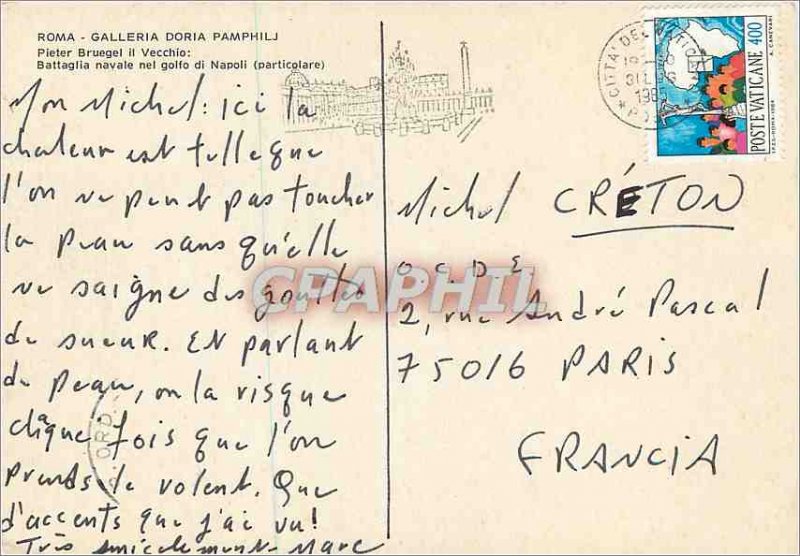 ROMA - GALLERIA DORIA PAMPHILJ
Pieter Bruegel il Vecchio:
Battaglia navale nel golfo di Napoli (particolare)
Mon Michel: ici la
chaleur est telle que
l'on ne peut pas toucher
la peau sans qu'elle
ne saigne des gouttes
de sueur. Et parlant
de peau, on la risque
chaque fois que l'on
prends le volent. Que
d'accents que j'ai vu!
Très amicalement Marc
CITTÀ DEL
POSTE VATICANE 400
A. CANEVARI
I.P.Z.S.-ROMA-1984
Michel CRÉTON
OCDE
2, rue André Pascal
75016 PARIS
FRANCIA
CPAPHIL
ORD.